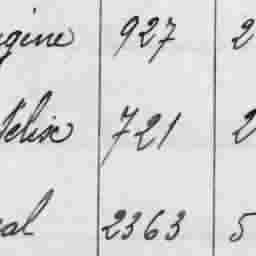 gine 927 2
Félix 721 2
al 2363 5